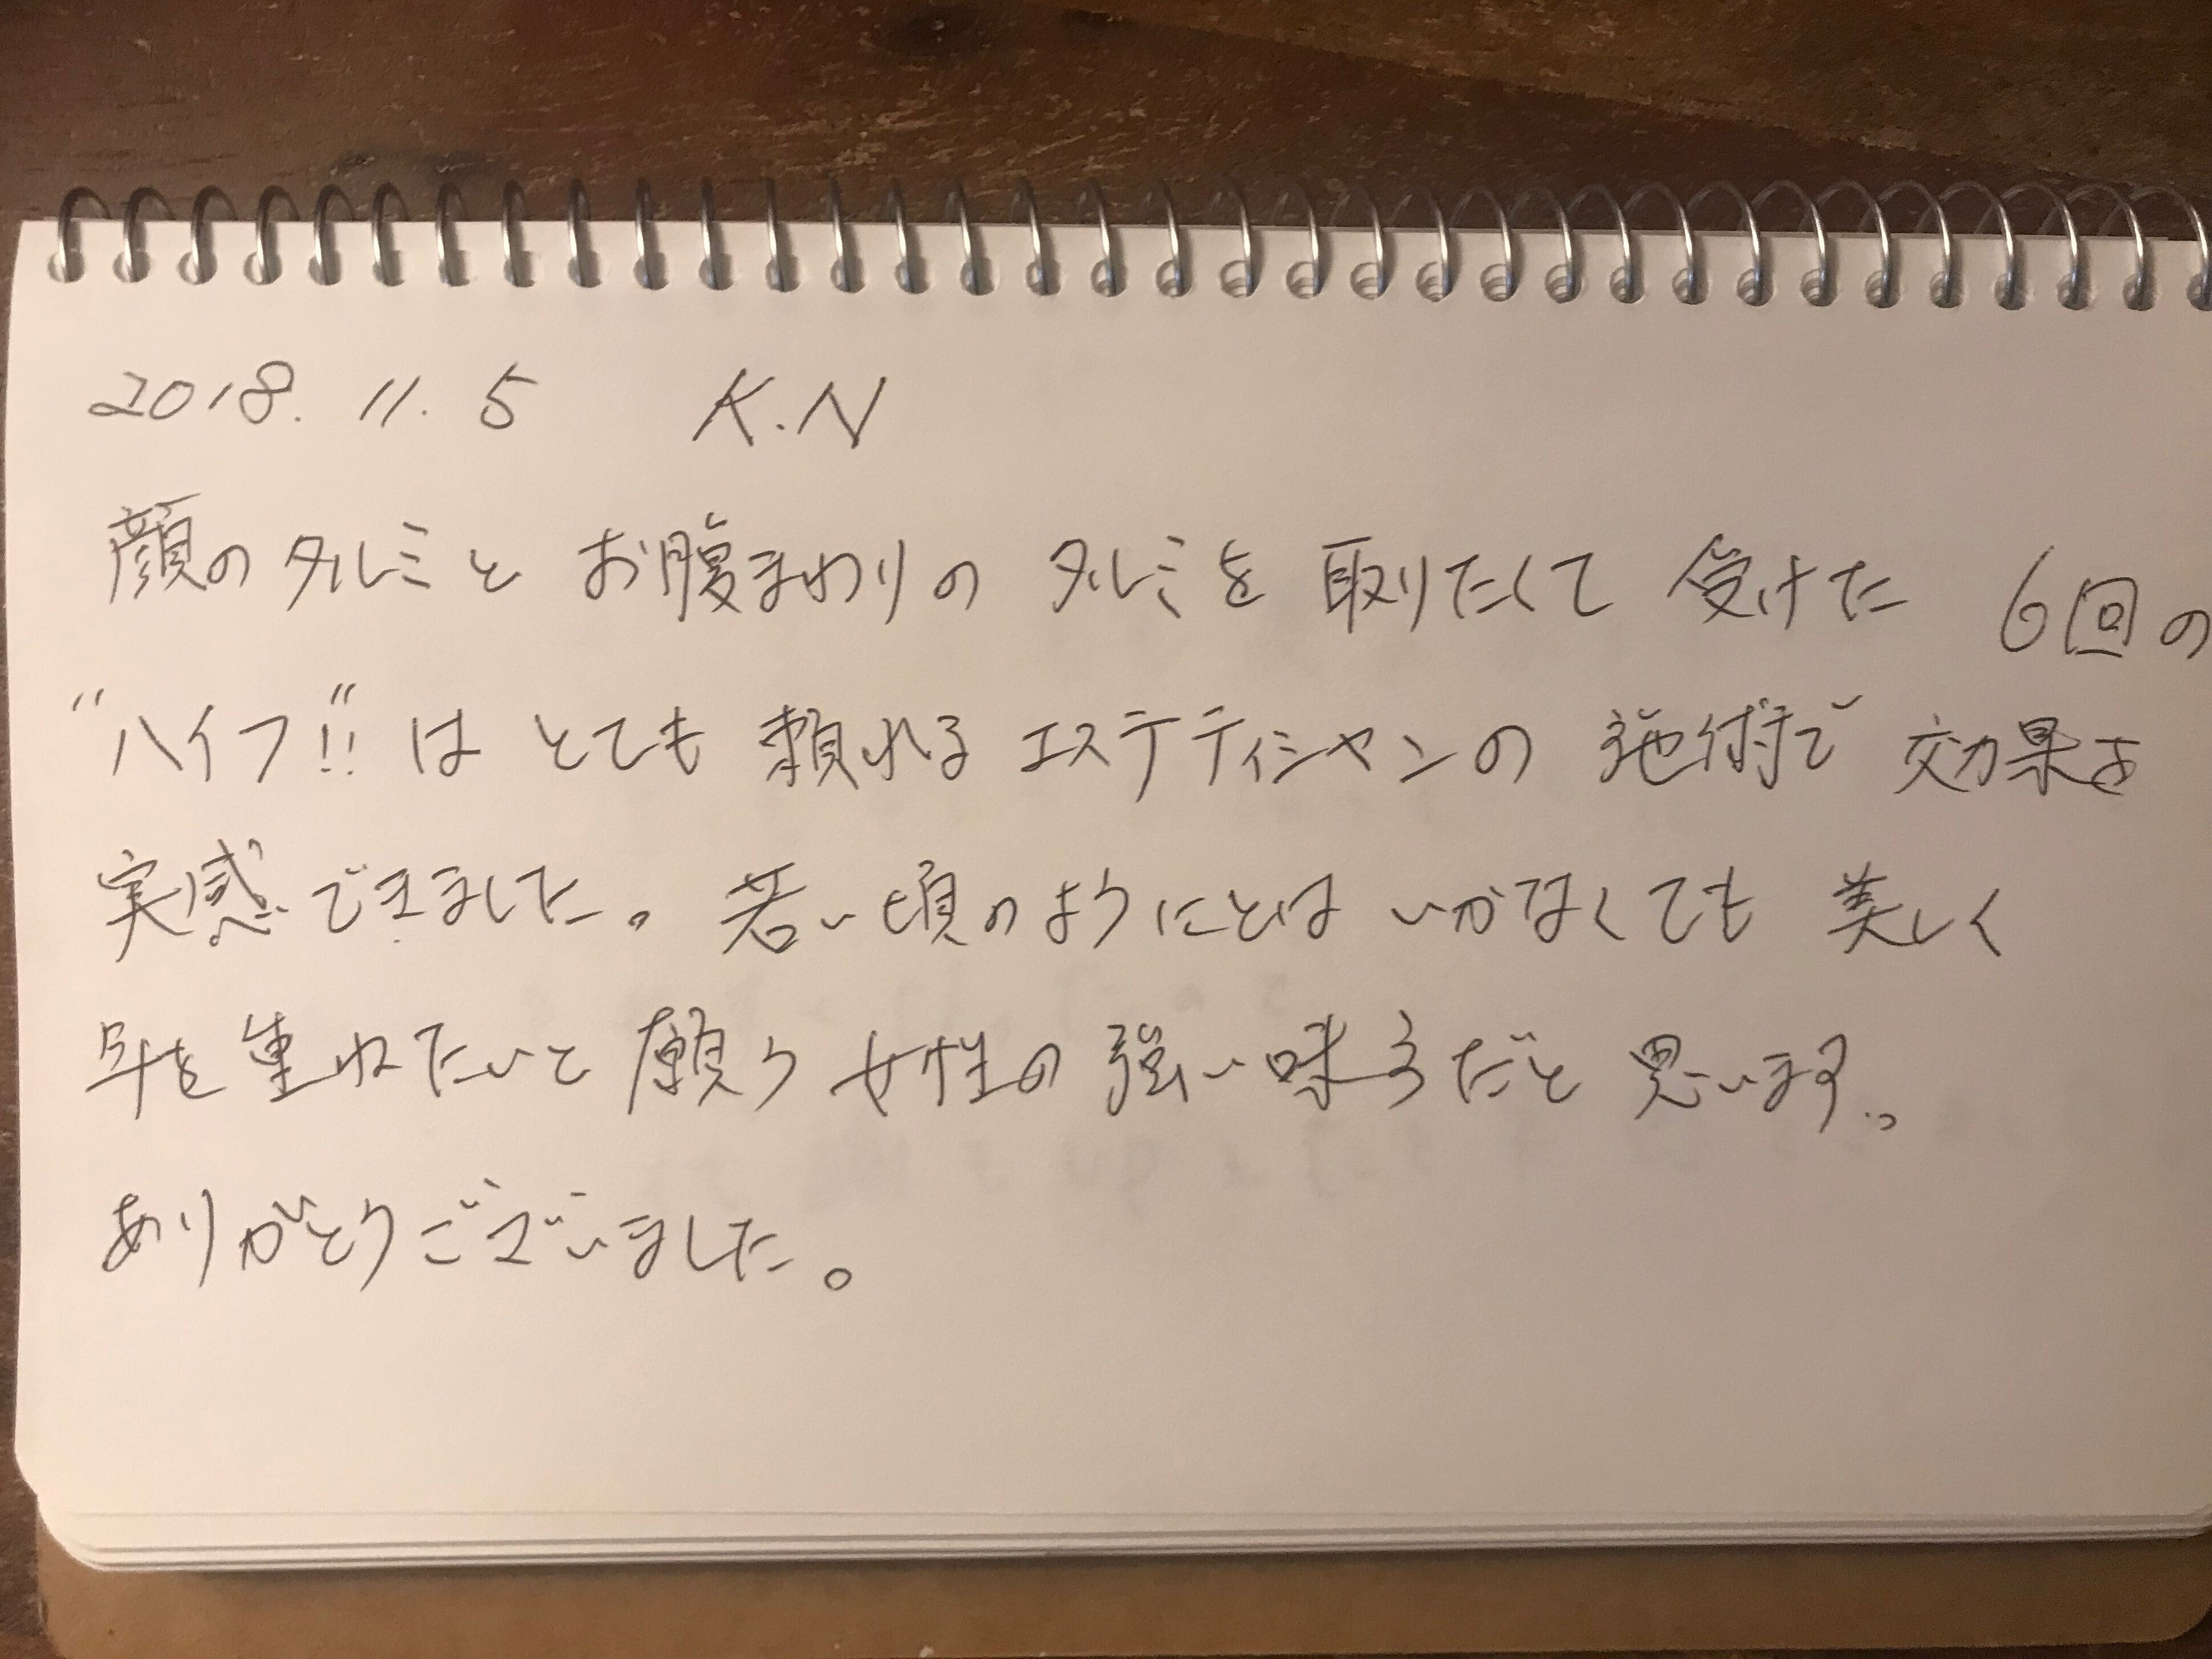 2018. 11. 5 K.N
顔のタルミと お腹まわりの タルミを 取りたくて 受けた 6回の
"ハイフ!!" は とても 頼れる エステティシャンの 施術で 効果を
実感できました。 若い頃のようにとは いかなくても 美しく
年を 重ねたいと 願う 女性の 強い味方だと 思います。
ありがとうございました。